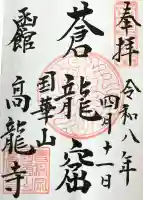 奉拝
令和八年
四月十一日
蒼龍窟
国華山
函館
高龍寺